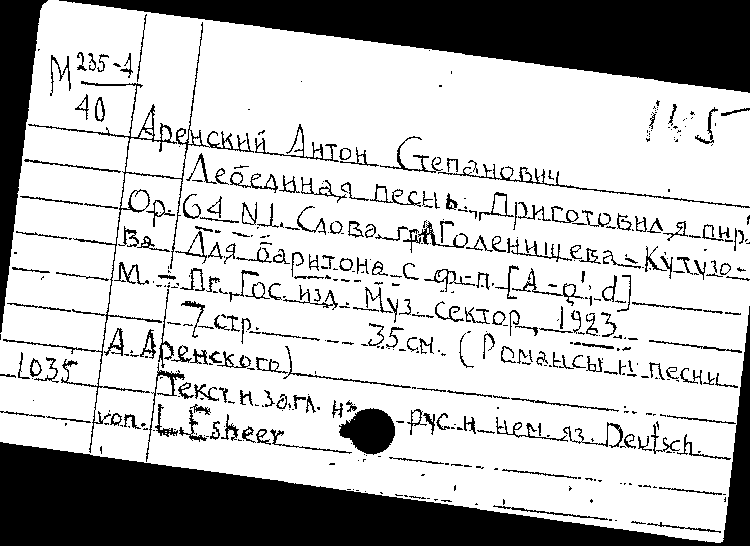 М 235-4
40
145
Аренский Антон Степанович
Лебединая песнь: „Приготовил я пир"
Ор. 64 N1. Слова гр. А Голенищева-Кутузо-
ва Для баритона с ф-п. [A-g'; d]
М. - Пг., Гос. изд. Муз сектор, 1923.
7 стр. 35 см. (Романсы и песни
А. Аренского)
1035
Текст и загл. на рус. и нем. яз. Deutsch.
von. L. Esbeer